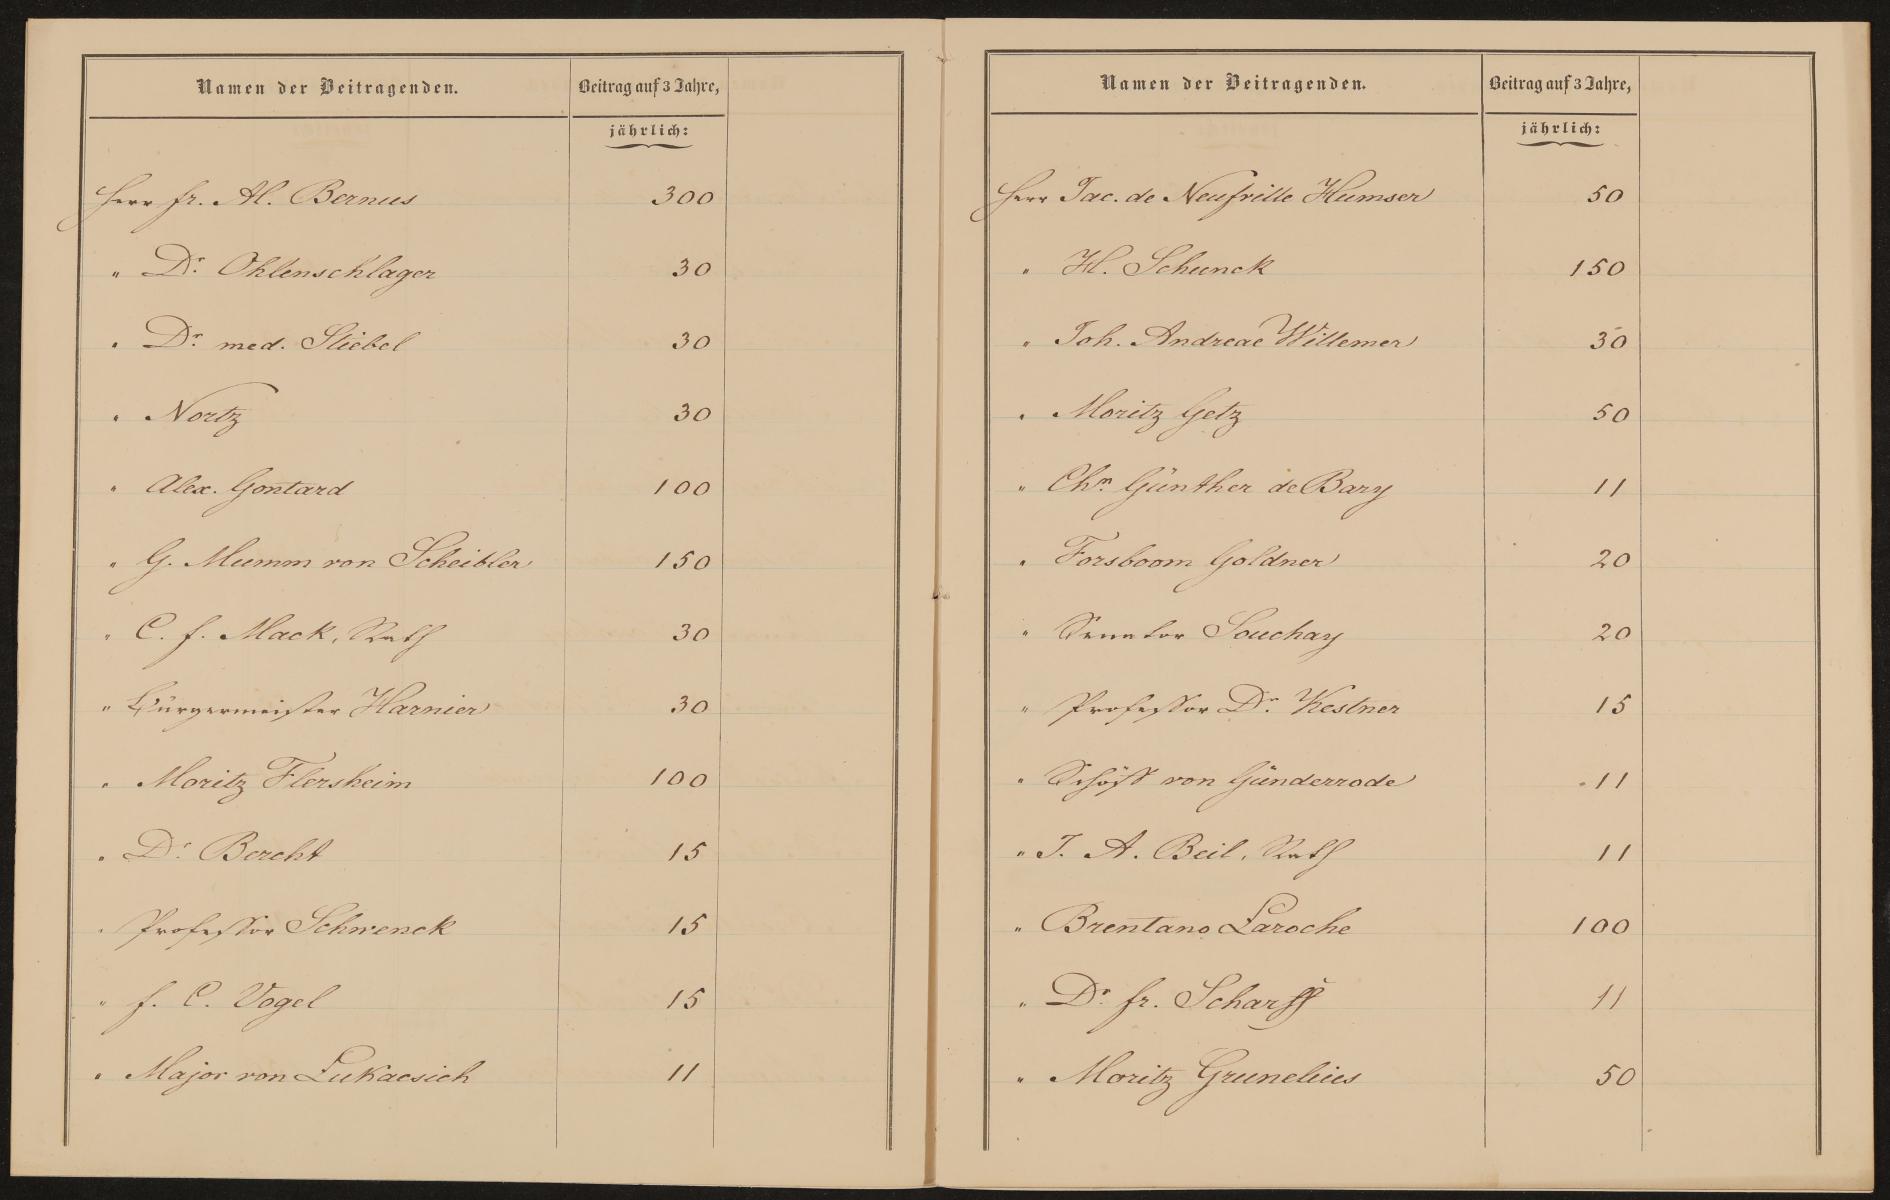 Namen der Beitragenden. Beitrag auf 3 Jahre,
jährlich:
Herr Fr. Al. Bernus 300
" Dr. Ohlenschlager 30
" Dr. med. Stiebel 30
" Nortz 30
" Alex. Gontard 100
" G. Mumm von Scheibler 150
" C. F. Mack, Rath 30
" Bürgermeister Harnier 30
" Moritz Flersheim 100
" Dr. Bercht 15
" Professor Schwenck 15
" F. C. Vogel 15
" Major von Lukacsich 11
Namen der Beitragenden. Beitrag auf 3 Jahre,
jährlich:
Herr Jac. de Neufville Humser 50
" H. Schunck 150
" Joh. Andreae Willemer 30
" Moritz Getz 50
" Chn. Günther de Bary 11
" Forsboom Goldner 20
" Senator Souchay 20
" Professor Dr. Kestner 15
" Schöff von Günderrode 11
" J. A. Beil, Rath 11
" Brentano Laroche 100
" Dr. Fr. Scharff 11
" Moritz Grunelius 50